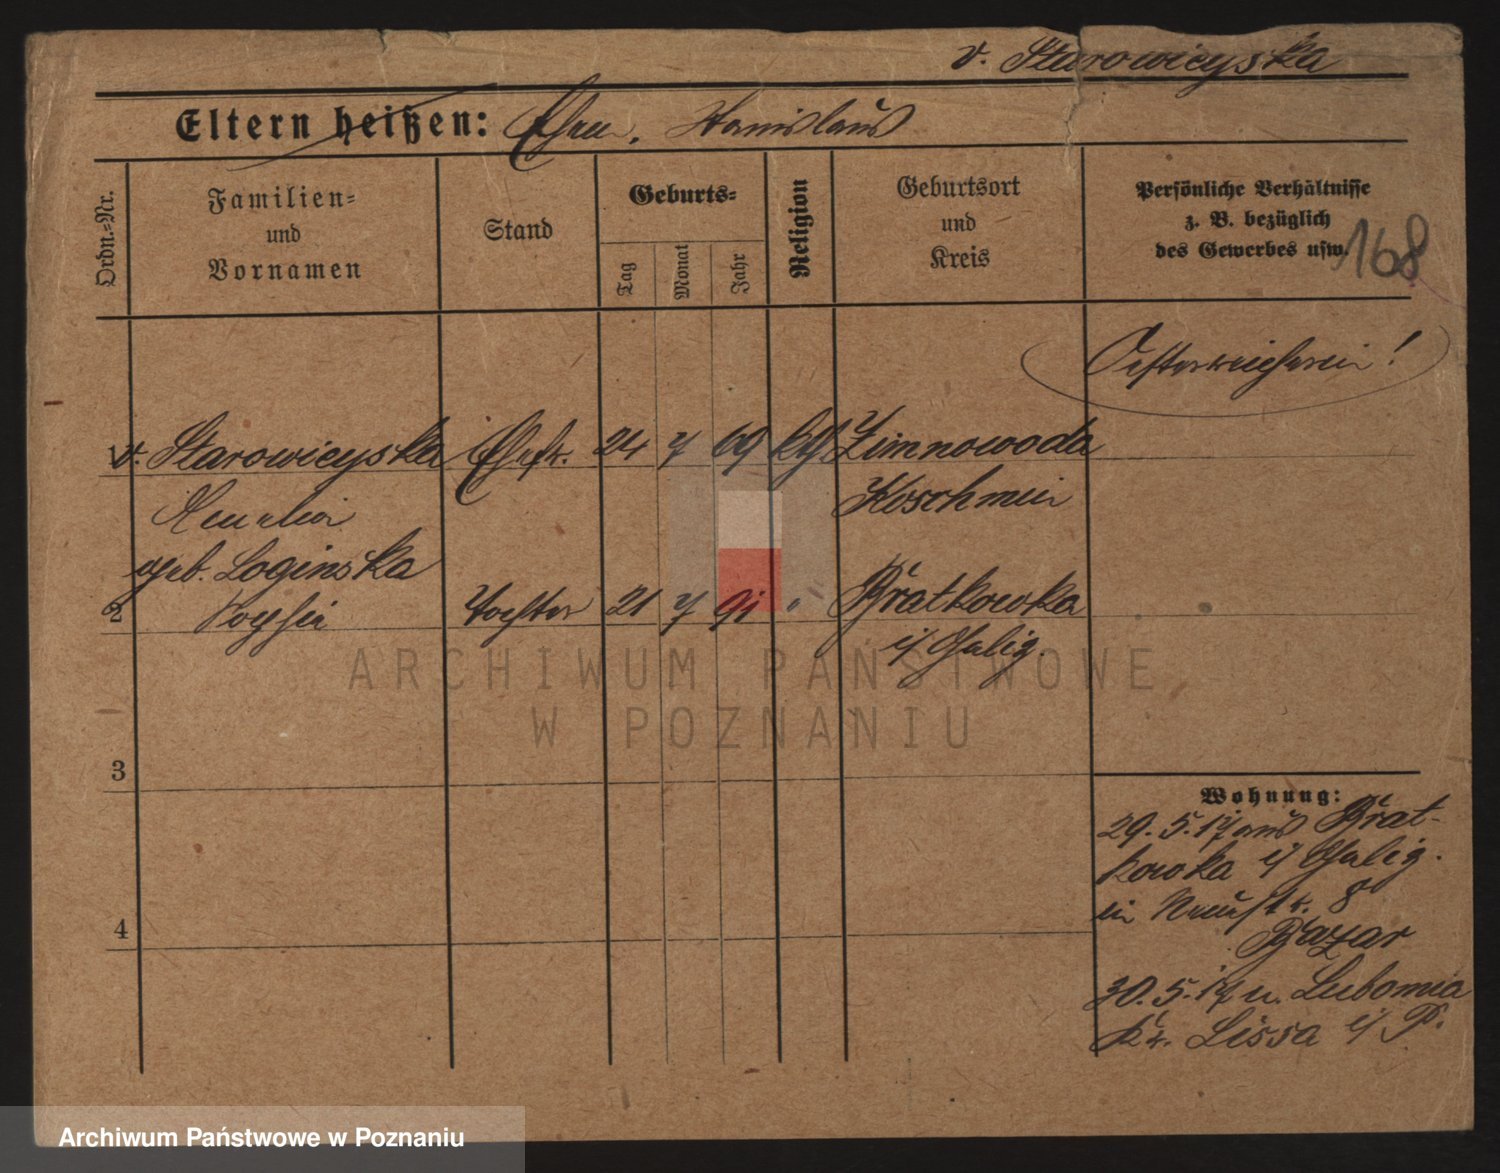 v. Starowieyska
Eltern heißen: Ehem. Stanislaus
Ordn.-Nr.
Familien-
und
Vornamen
Stand
Geburts-
Tag
Monat
Jahr
Religion
Geburtsort
und
Kreis
Persönliche Verhältnisse
z. B. bezüglich
des Gewerbes usw.
168
Oesterreicherin!
1 v. Starowieyska Ehefr. 24 7 69 kth Zimnowoda
Amalia Koschmin
geb. Loginska
2 Sophia Tochter 21 7 91 " Bratkowka
i/ Galiz.
3
4
Wohnung:
29. 5. 17 aus Brat-
kowka i/ Galiz.
in Neustr. 8
Bazar
30. 5. 17 n. Lubonia
Kr. Lissa i/ P.
ARCHIWUM PAŃSTWOWE
W POZNANIU
Archiwum Państwowe w Poznaniu